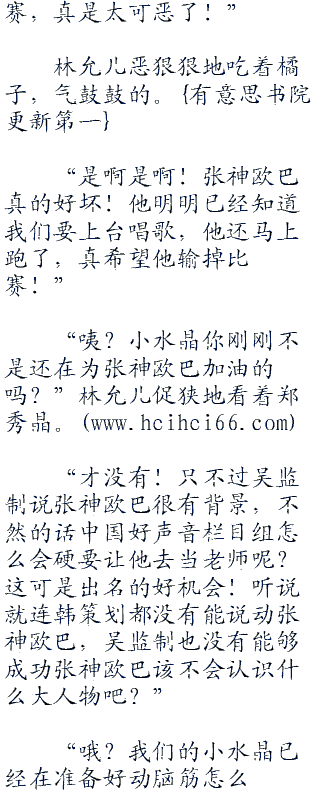 赛，真是太可恶了！”
林允儿恶狠狠地吃着橘
子，气鼓鼓的。{有意思书院
更新第一}
“是啊是啊！张神欧巴
真的好坏！他明明已经知道
我们要上台唱歌，他还马上
跑了，真希望他输掉比
赛！”
“咦？小水晶你刚刚不
是还在为张神欧巴加油的
吗？”林允儿促狭地看着郑
秀晶。(www.hcihci66.com)
“才没有！只不过吴监
制说张神欧巴很有背景，不
然的话中国好声音栏目组怎
么会硬要让他去当老师呢？
这可是出名的好机会！听说
就连韩策划都没有能说动张
神欧巴，吴监制也没有能够
成功张神欧巴该不会认识什
么大人物吧？”
“哦？我们的小水晶已
经在准备好动脑筋怎么